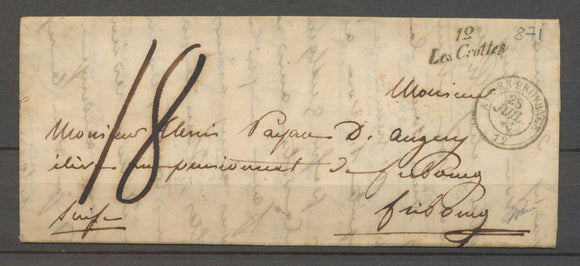 12
Les Crottes
871
18
Monsieur
Monsieur Payan D.
élève au pensionnat de
fribourg
fribourg
Suisse
28
12